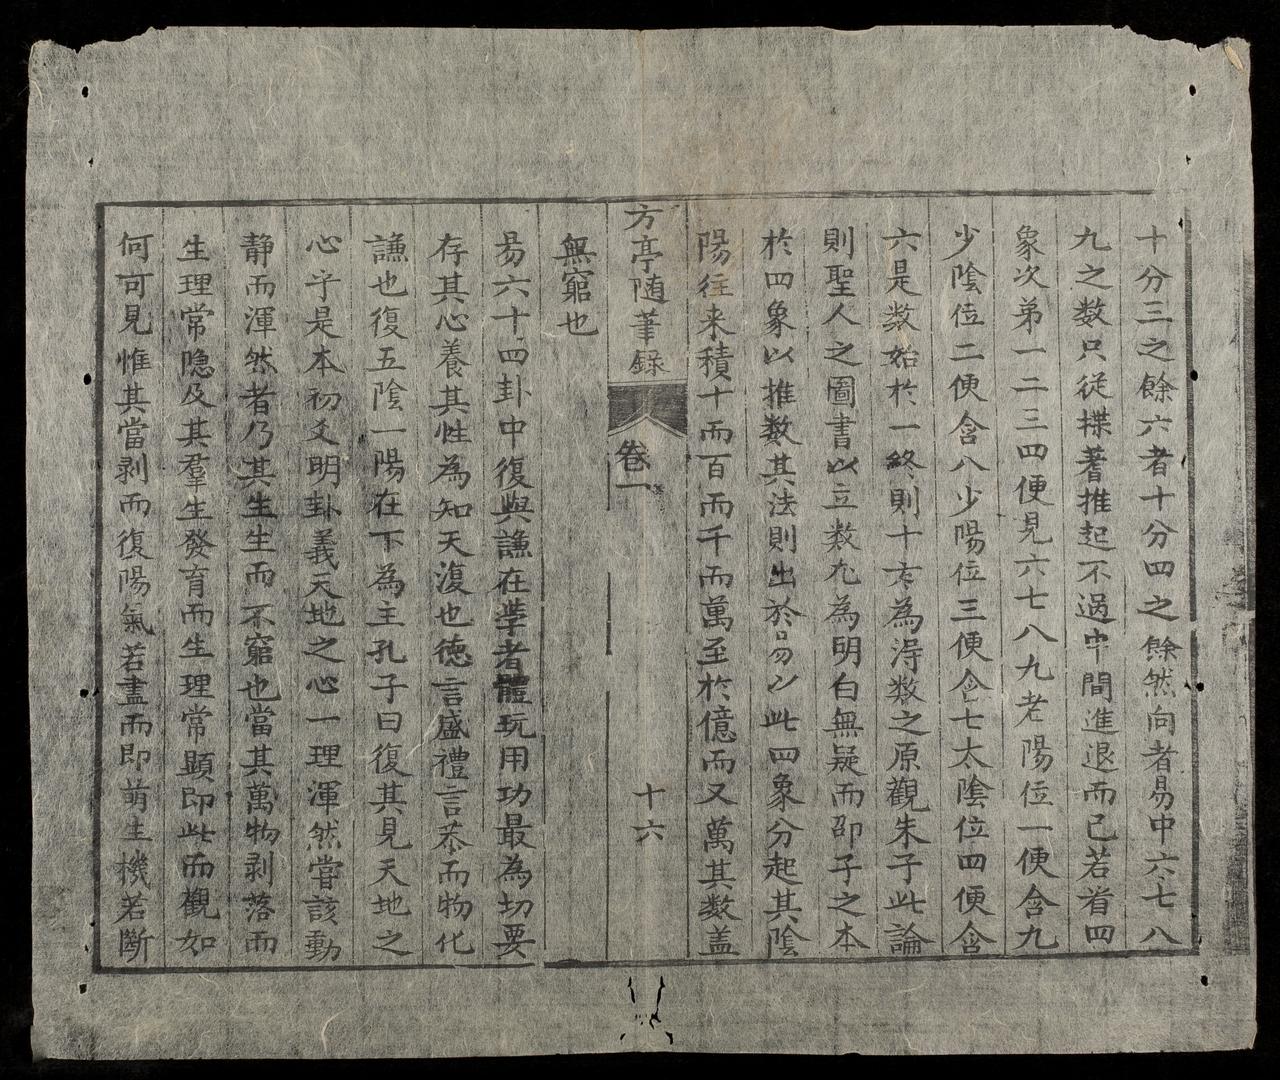 十分三之餘六者十分四之餘然向者易中六七八
九之数只從揲蓍推起不過中間進退而已若看四
象次第一二三四便見六七八九老陽位一便含九
少陰位二便含八少陽位三便含七太陰位四便含
六是数始於一終則十方為淂数之原觀朱子此論
則聖人之圖書以立数尤為明白無疑而邵子之本
於四象以推数其法則出於易以此四象分起其陰
陽往来積十而百而千而萬至於億而又萬其数盖
無窮也
方亭随筆録
卷一
十六
易六十四卦中復與謙在學者體玩用功最為切要
存其心養其性為知天復也德言盛禮言恭而物化
謙也復五陰一陽在下為主孔子曰復其見天地之
心乎是本初爻明卦義天地之心一理渾然嘗該動
静而渾然者乃其生生而不窮也當其萬物剥落而
生理常隐及其羣生發育而生理常顯即此而觀如
何可見惟其當剥而復陽氣若盡而即萌生機若斷